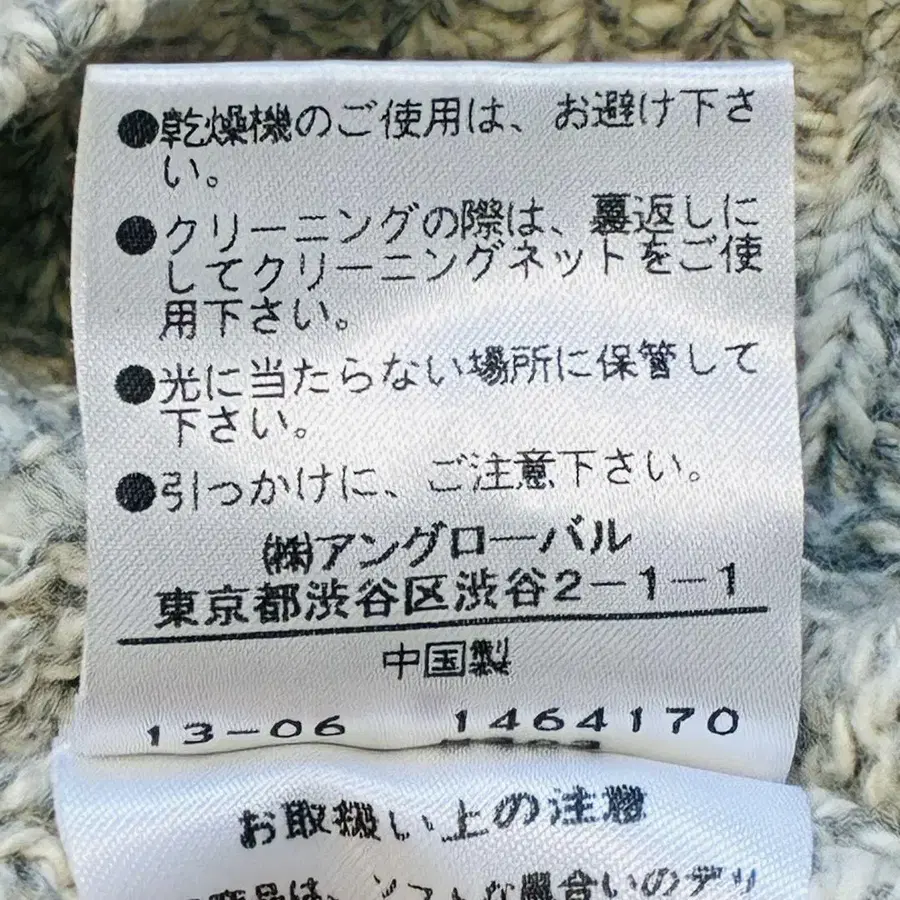 ●乾燥機のご使用は、お避け下さ
い。
●クリーニングの際は、裏返しに
してクリーニングネットをご使
用下さい。
●光に当たらない場所に保管して
下さい。
●引っかけに、ご注意下さい。
㈱アングローバル
東京都渋谷区渋谷2-1-1
中国製
13-06 1464170
お取扱い上の注意
風合いのデリ